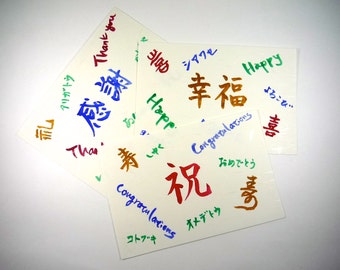 Thank you
アリガトウ
感謝
礼
Tha
喜
シアワセ
Happy
幸福
よろこび
Happy
喜
Congratulations
寿
祝
おめでとう
Congratulations
オメデトウ
寿
コトブキ